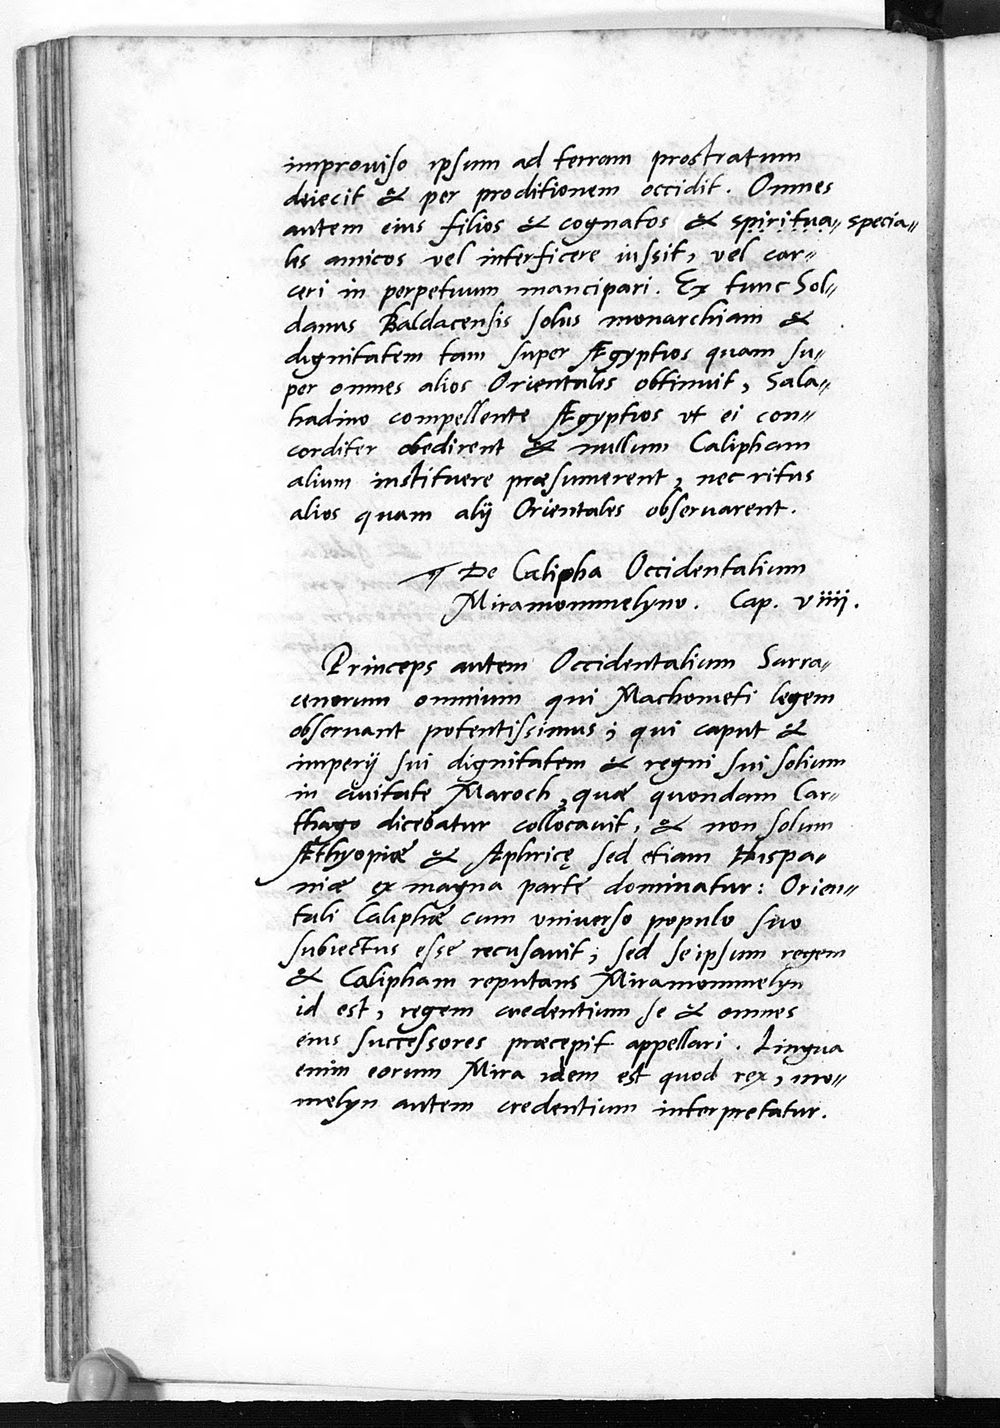 improuiso ipsum ad terram prostratum
deiecit & per proditionem occidit. Omnes
autem eius filios & cognatos & spiritua〃 specia〃
les amicos vel interficere iussit, vel car〃
ceri in perpetuum mancipari. Ex tunc Sol〃
danus Baldacensis solus monarchiam &
dignitatem tam super Ægyptios quam su〃
per omnes alios Orientales obtinuit, Sala〃
hadino compellente Ægyptios vt ei con〃
corditer obedirent & nullum Calipham
alium instituere præsumerent, nec ritus
alios quam alij Orientales obseruarent.
¶ De Calipha Occidentalium
Miramommelyno. Cap. viiij.
Princeps autem Occidentalium Sarra〃
cenorum omnium qui Machometi legem
obseruant potentissimus; qui caput &
imperij sui dignitatem & regni sui solium
in ciuitate Maroch, quæ quondam Car〃
thago dicebatur collocauit, & non solum
Æthyopiæ & Æphricę sed etiam Hispa〃
niæ ex magna parte dominatur: Orien〃
tali Caliphæ cum vniuerso populo suo
subiectus esse recusauit; sed seipsum regem
& Calipham reputans Miramommelyn
id est, regem credentium se & omnes
eius successores præcepit appellari. Lingua
enim eorum Mira idem est quod rex, mo〃
melyn autem credentium interpretatur.